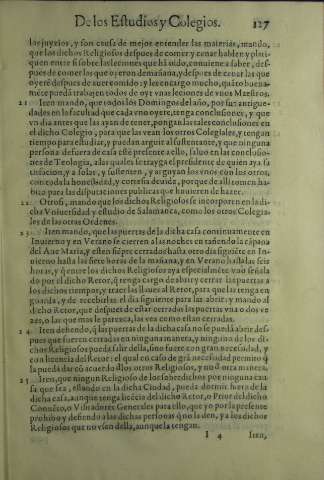 De los Estudios y Colegios. 127
los juyzios, y son causa de mejor entender las materias, mando,
que los dichos Religiosos despues de comer y cenar hablen y plati-
quen entre si sobre las leciones que ha auido, conuiene a saber, des-
pues de comer los que oyeron de mañana, y despues de cenar las que
oyerẽ despues de auer comido: y les encargo mucho, quã to buena-
mẽte pueda trabajen todos de oyr varias leciones de vnos Maestros.
21 Iten mando, que todos los Domingos del año, por sus antigue-
dades en la facultad que cada vno oyere, tenga conclusiones, y que
vn dia antes que las ayan de tener, pongan las tales conclusiones en
el dicho Colegio, para que las vean los otros Colegiales, y tengan
tiempo para estudiar, y puedan arguir al sustentante, y que ninguna
persona de fuera de casa estè presente a ello, saluo en las conclusio-
nes de Teologia, a las quales se trayga el presidente de quien aya sa
tisfacion, y a solas, y sustenten, y arguyan los vnos con los otros,
con toda la honestidad, y cortesia deuida, porque de alli tomen ha-
bito para las disputaciones publicas que huuieren de hazer.
22 Otrosi, mando que los dichos Religiosos se incorporen en la di-
cha Vniuersidad y estudio de Salamanca, como los otros Colegia-
les de las otras Ordenes.
23 Iten mando, que las puertas de la dicha casa continuamente en
Inuierno y en Verano se cierren a las noches en tañendo la cãpana
del Aue Maria, y estèn siẽpre cerradas hasta otro dia siguiẽte en In-
uierno hasta las siete horas de la mañana, y en Verano hasta las seis
horas, y q̃ entre los dichos Religiosos aya especialmẽte vno señala
do por el dicho Retor, q̃ tenga cargo de abrir y cerrar las puertas a
los dichos tiempos, y traer las llaues al Retor, para que las tenga en
guarda, y de recebirlas el dia siguiente para las abrir: y mando al
dicho Retor, que despues de estar cerradas las puertas vna o dos ve
zes, o las que mas le parezca, las vea como estàn cerradas.
24 Iten defiendo, q̃ las puertas de la dicha casa no se puedã abrir des-
pues que fueren cerradas en ninguna manera, y ninguno de los di-
chos Religiosos pueda salir della, sino fuere con gran necessidad, y
con licencia del Retor: el qual en caso de grã necessidad permito q̃
la pueda dar cõ acuerdo d̃los otros Religiosos, y no d̃ otra manera.
25 Iten, que ningun Religioso de los sobredichos por ninguna cau-
sa que sea, estando en la dicha Ciudad, pueda dormir fuera de la
dicha casa, aunque tenga licẽcia del dicho Retor, o Prior del dicho
Conuẽto, o Visitadores Generales para ello, que yo por la presente
prohibo y defiendo a las dichas personas q̃ no la den, ya los dichos
Religiosos que no vsen della, aunque la tengan.
I 4 Iten,